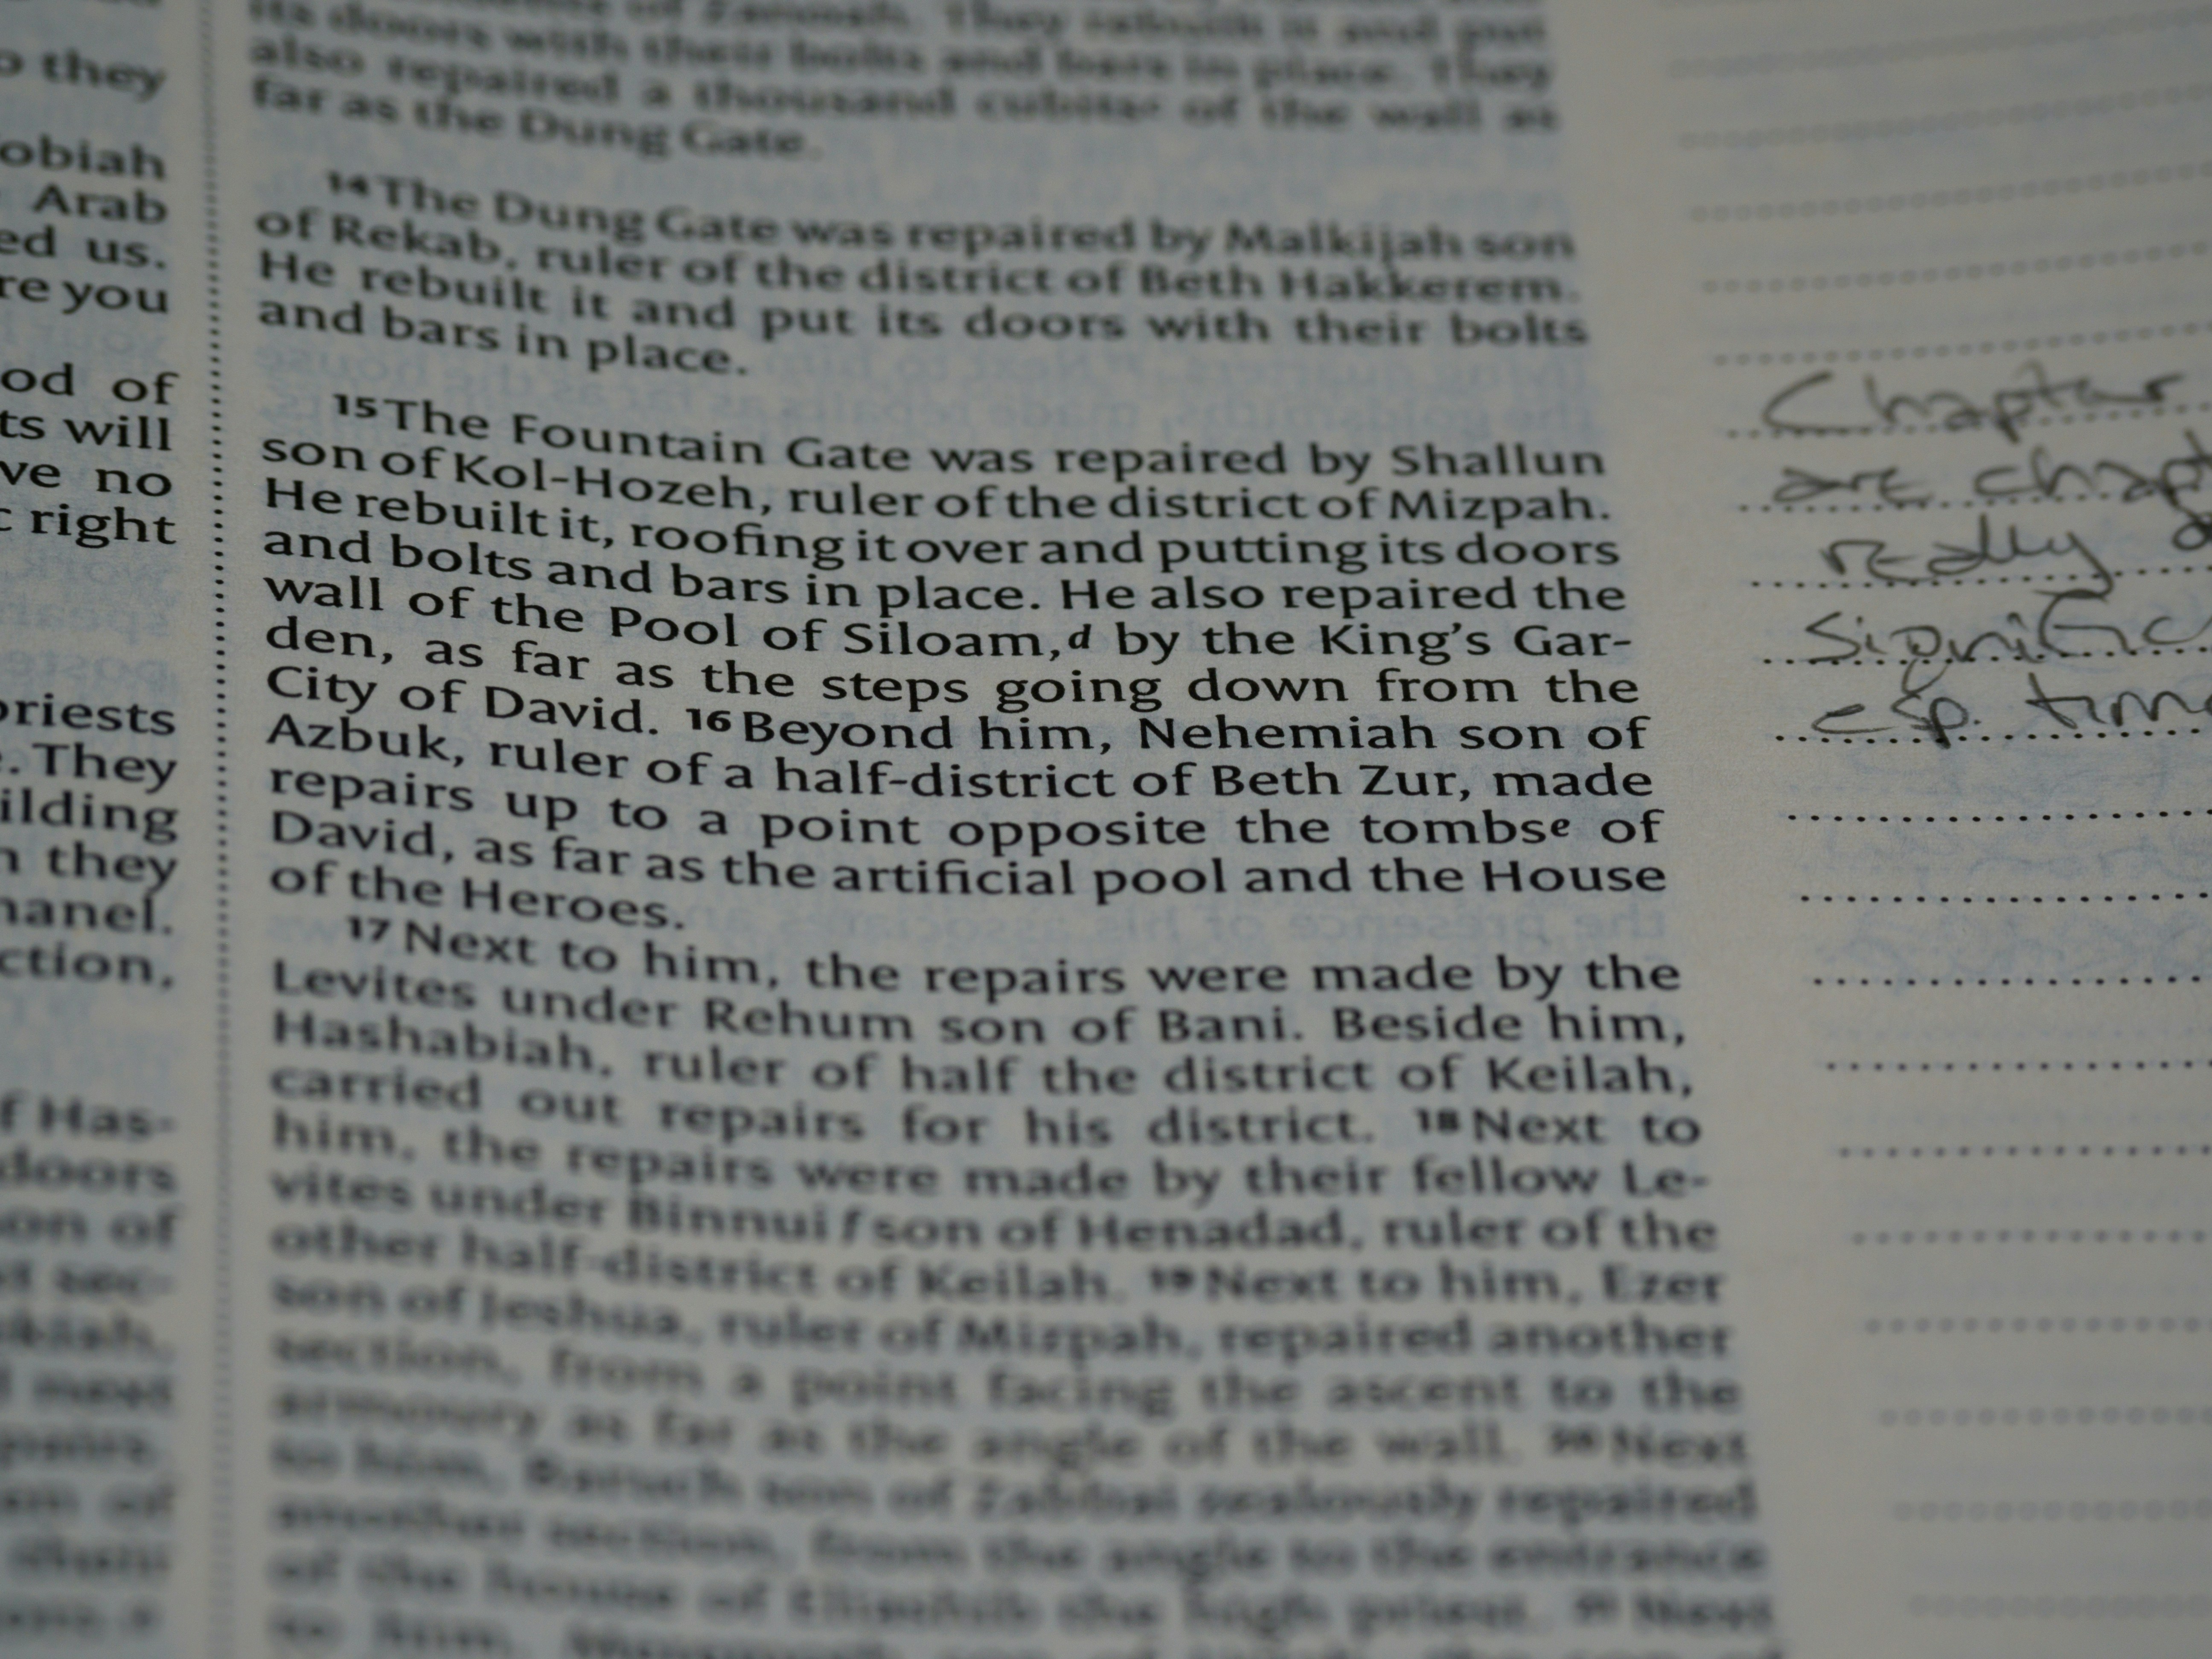 they
obiah
Arab
ed us.
re you
od of
ts will
ve no
right
priests
They
ilding
they
hanel.
ction,
f Has-
doors
on of
its doors with their bolts and bars in place. They
also repaired a thousand cubits of the wall as
far as the Dung Gate.
14 The Dung Gate was repaired by Malkijah son
of Rekab, ruler of the district of Beth Hakkerem.
He rebuilt it and put its doors with their bolts
and bars in place.
15 The Fountain Gate was repaired by Shallun
son of Kol-Hozeh, ruler of the district of Mizpah.
He rebuilt it, roofing it over and putting its doors
and bolts and bars in place. He also repaired the
wall of the Pool of Siloam,d by the King's Gar-
den, as far as the steps going down from the
City of David. 16 Beyond him, Nehemiah son of
Azbuk, ruler of a half-district of Beth Zur, made
repairs up to a point opposite the tombse of
David, as far as the artificial pool and the House
of the Heroes.
17 Next to him, the repairs were made by the
Levites under Rehum son of Bani. Beside him,
Hashabiah, ruler of half the district of Keilah,
carried out repairs for his district. 18 Next to
him, the repairs were made by their fellow Le-
vites under Binnui f son of Henadad, ruler of the
other half-district of Keilah. 19 Next to him, Ezer
son of Jeshua, ruler of Mizpah, repaired another
section, from a point facing the ascent to the
armoury as far as the angle of the wall. 20 Next
to him, Baruch son of Zabbai zealously repaired
another section, from the angle to the entrance
of the house of Eliashib the high priest. 21 Next
to him,
Chapter
are chapt
really
Signific
esp. time